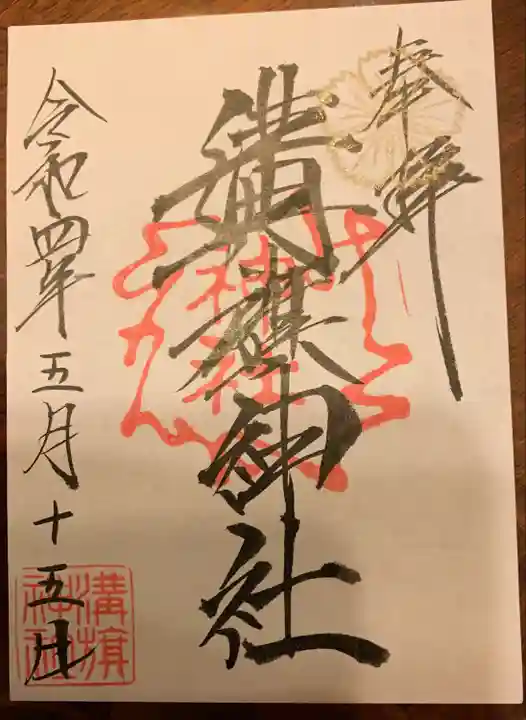 奉拝
溝旗神社
令和四年五月十五日
溝旗
神社